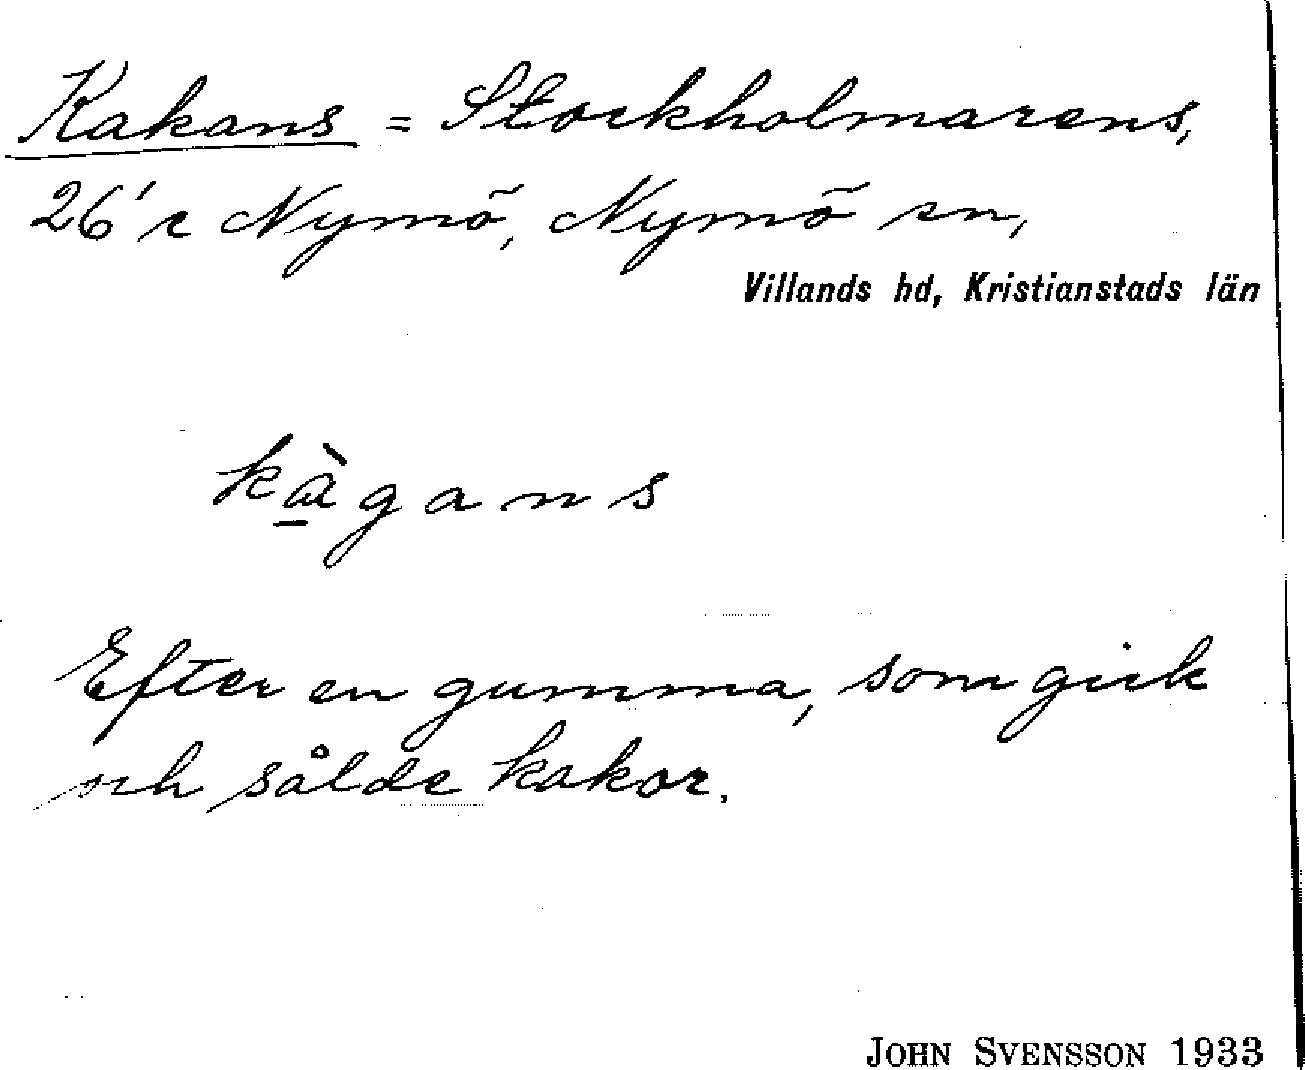 Kakans = Stockholmarens,
26'c Nymö, Nymö sn,
Villands hd, Kristianstads län
kàgans
Efter en gumma, som gick
och sålde kakor.
JOHN SVENSSON 1933